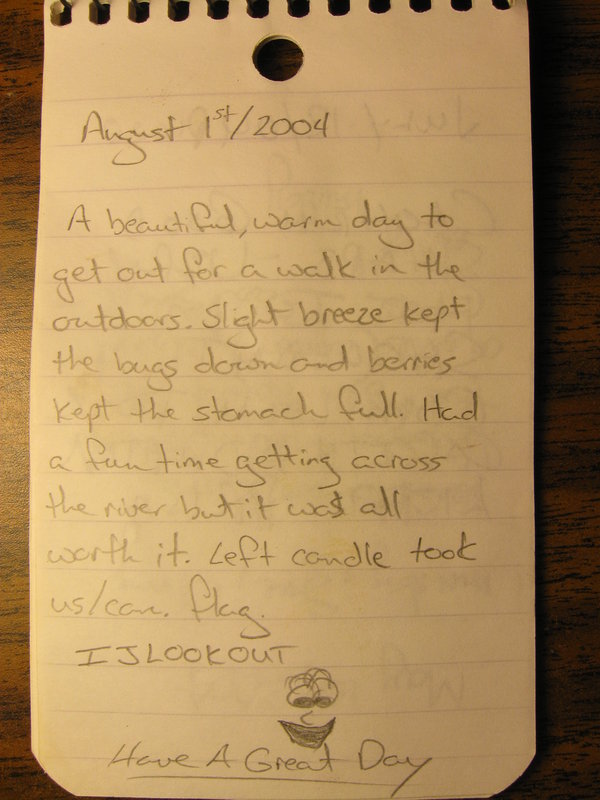 August 1st/2004
A beautiful, warm day to
get out for a walk in the
outdoors. Slight breeze kept
the bugs down and berries
kept the stomach full. Had
a fun time getting across
the river but it was all
worth it. Left candle took
us/can. flag.
IJLOOKOUT
Have A Great Day